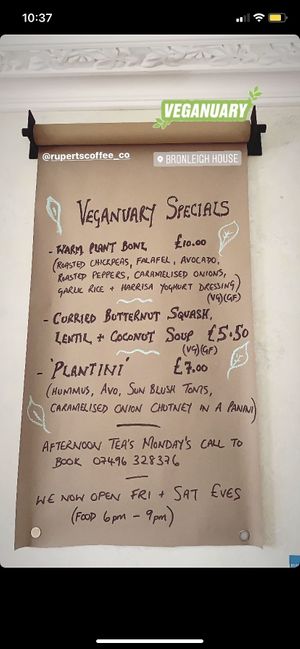 10:37
VEGANUARY
@rupertscoffee_co
BRONLEIGH HOUSE
VEGANUARY SPECIALS
- WARM PLANT BOWL £10.00
(ROASTED CHICKPEAS, FALAFEL, AVOCADO,
ROASTED PEPPERS, CARAMELISED ONIONS,
GARLIC RICE + HARRISA YOGHURT DRESSING)
(VG)(GF)
- CURRIED BUTTERNUT SQUASH,
LENTIL + COCONUT SOUP £5.50
(VG)(GF)
- 'PLANTINI' £7.00
(HUMMUS, AVO, SUN BLUSH TOMTS,
CARAMELISED ONION CHUTNEY IN A PANINI)
AFTERNOON TEA'S MONDAY'S CALL TO
BOOK 07496 328376
WE NOW OPEN FRI + SAT EVES
(FOOD 6pm - 9pm)